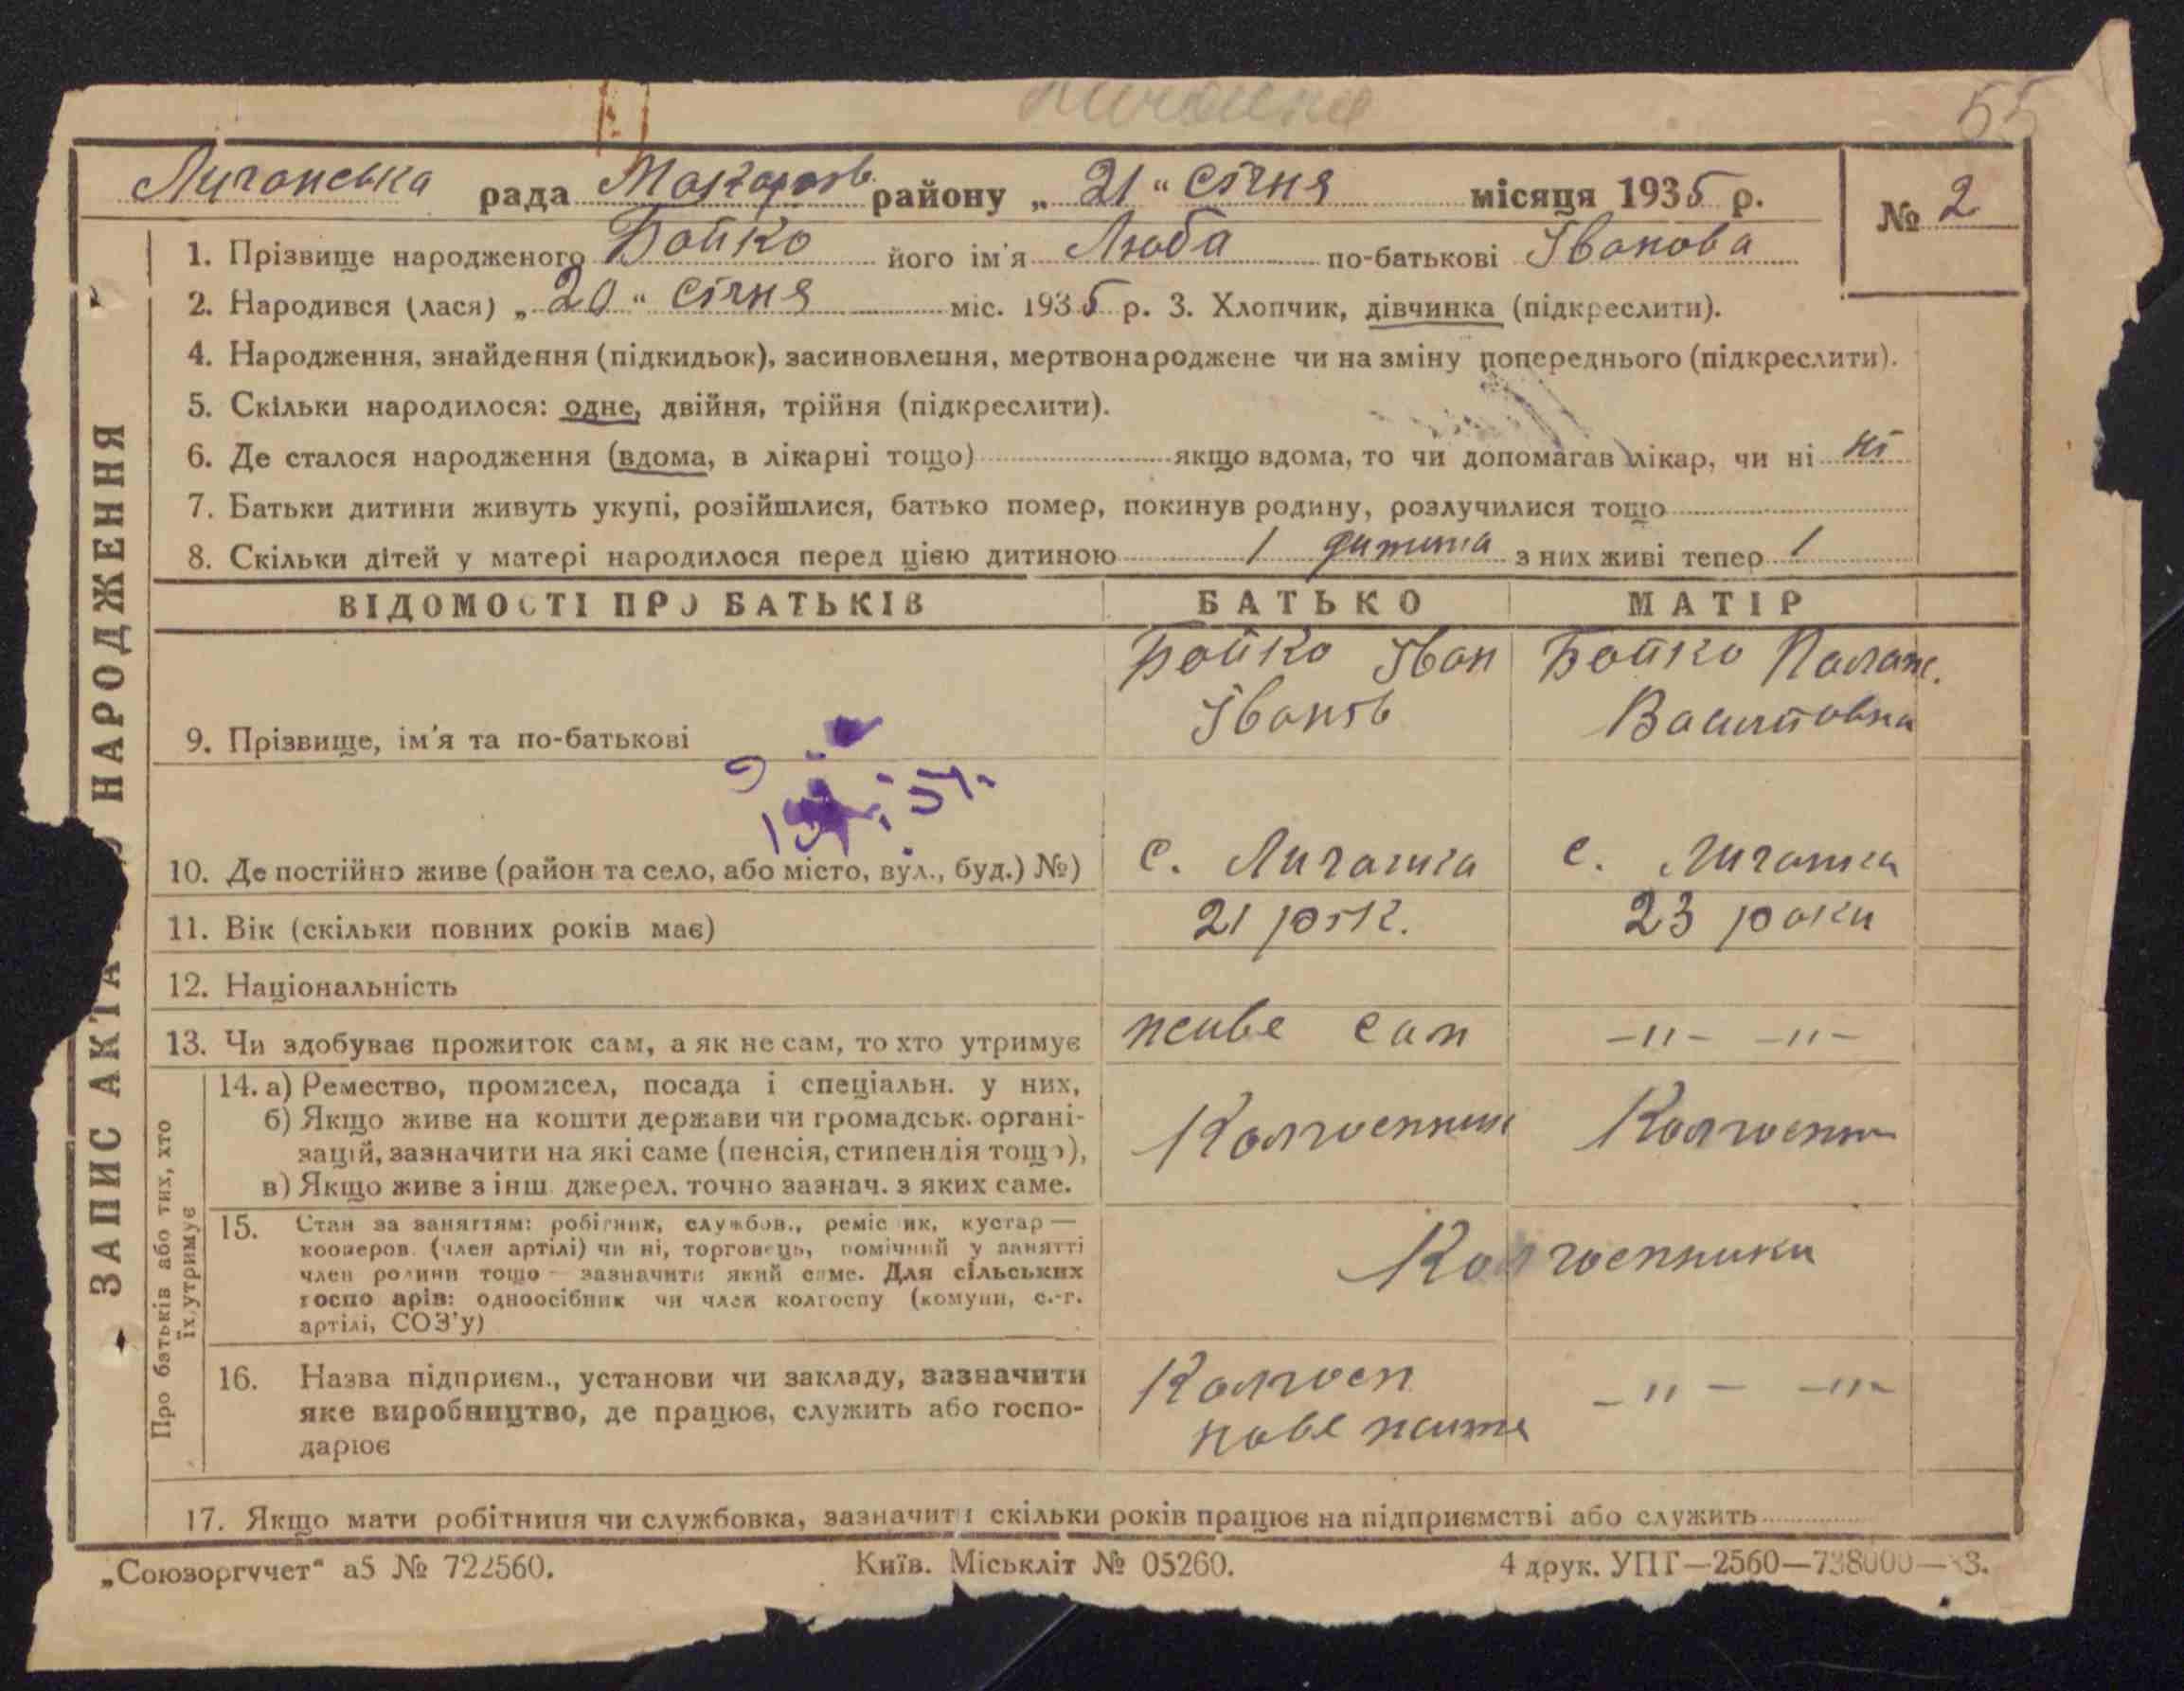 55
Личанська рада Макаров. району „ 21 “ Січня місяця 1935 р.
№ 2
1. Прізвище народженого Бойко його ім'я Люба по-батькові Іванова
2. Народився (лася) „ 20 “ Січня міс. 1935 р. 3. Хлопчик, дівчинка (підкреслити).
4. Народження, знайдення (підкидьок), засиновлення, мертвонароджене чи на зміну попереднього (підкреслити).
5. Скільки народилося: одне, двійня, трійня (підкреслити).
6. Де сталося народження (вдома, в лікарні тощо) якщо вдома, то чи допомагав лікар, чи ні ні
7. Батьки дитини живуть укупі, розійшлися, батько помер, покинув родину, розлучилися тощо
8. Скільки дітей у матері народилося перед цією дитиною 1 дитина з них живі тепер 1
ЗАПИС АКТА НАРОДЖЕННЯ
ВІДОМОСТІ ПРО БАТЬКІВ БАТЬКО МАТІР
Бойко Іван Бойко Палаж.
9. Прізвище, ім'я та по-батькові Іванів Василівна
10. Де постійно живе (район та село, або місто, вул., буд.) №) с. Личанка с. Личанка
11. Вік (скільки повних років має) 21 рік. 23 роки
12. Національність
13. Чи здобуває прожиток сам, а як не сам, то хто утримує живе сам –"– –"–
Про батьків або тих, хто
їх утримує
14. а) Ремество, промисел, посада і спеціальн. у них,
б) Якщо живе на кошти держави чи громадськ. органі-
зацій, зазначити на які саме (пенсія, стипендія тощо),
в) Якщо живе з інш. джерел. точно зазнач. з яких саме.
Колгоспник Колгоспн
15. Стан за заняттям: робітник, службов., реміс ик, кустар —
коонеров. (член артілі) чи ні, торговець, помічний у занятті
член родини тощо — зазначити який саме. Для сільських
госпо арів: одноосібник чи член колгоспу (комуни, с.-г.
артілі, СОЗ'у)
Колгоспники
16. Назва підприєм., установи чи закладу, зазначити
яке виробництво, де працює, служить або госпо-
дарює
Колгосп –"– –"–
нове життя
17. Якщо мати робітниця чи службовка, зазначити скільки років працює на підприємстві або служить
„Союзоргучет“ а5 № 722560. Київ. Міськліт № 05260. 4 друк. УПГ—2560—738000— 3.